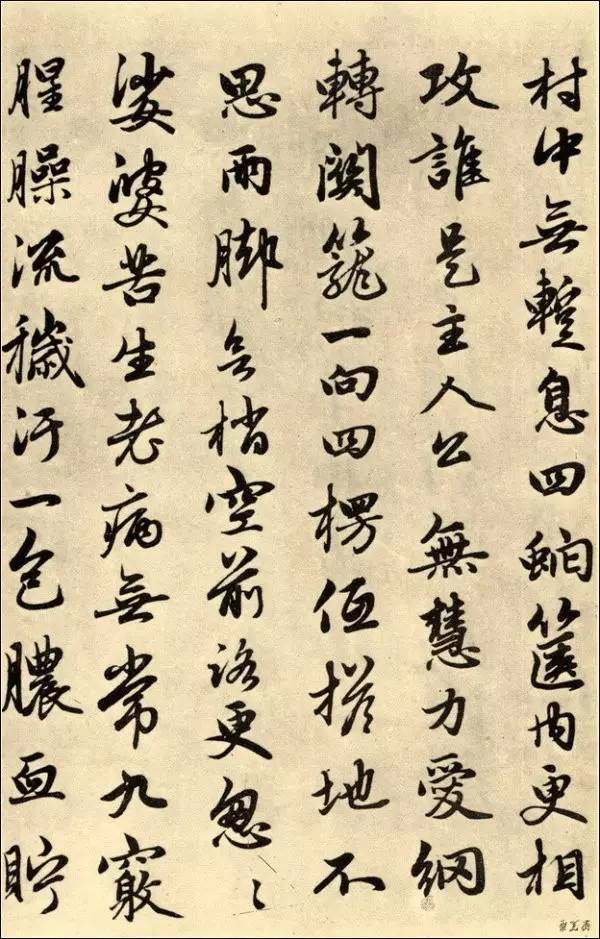 村中無暫息四虵篋内更相
攻誰是主人公 無慧力愛網
轉關籠一向四楞但搭地不
思兩脚會梢空前路更怱〻
娑婆苦生老病無常九竅
腥臊流穢汙一包膿血貯